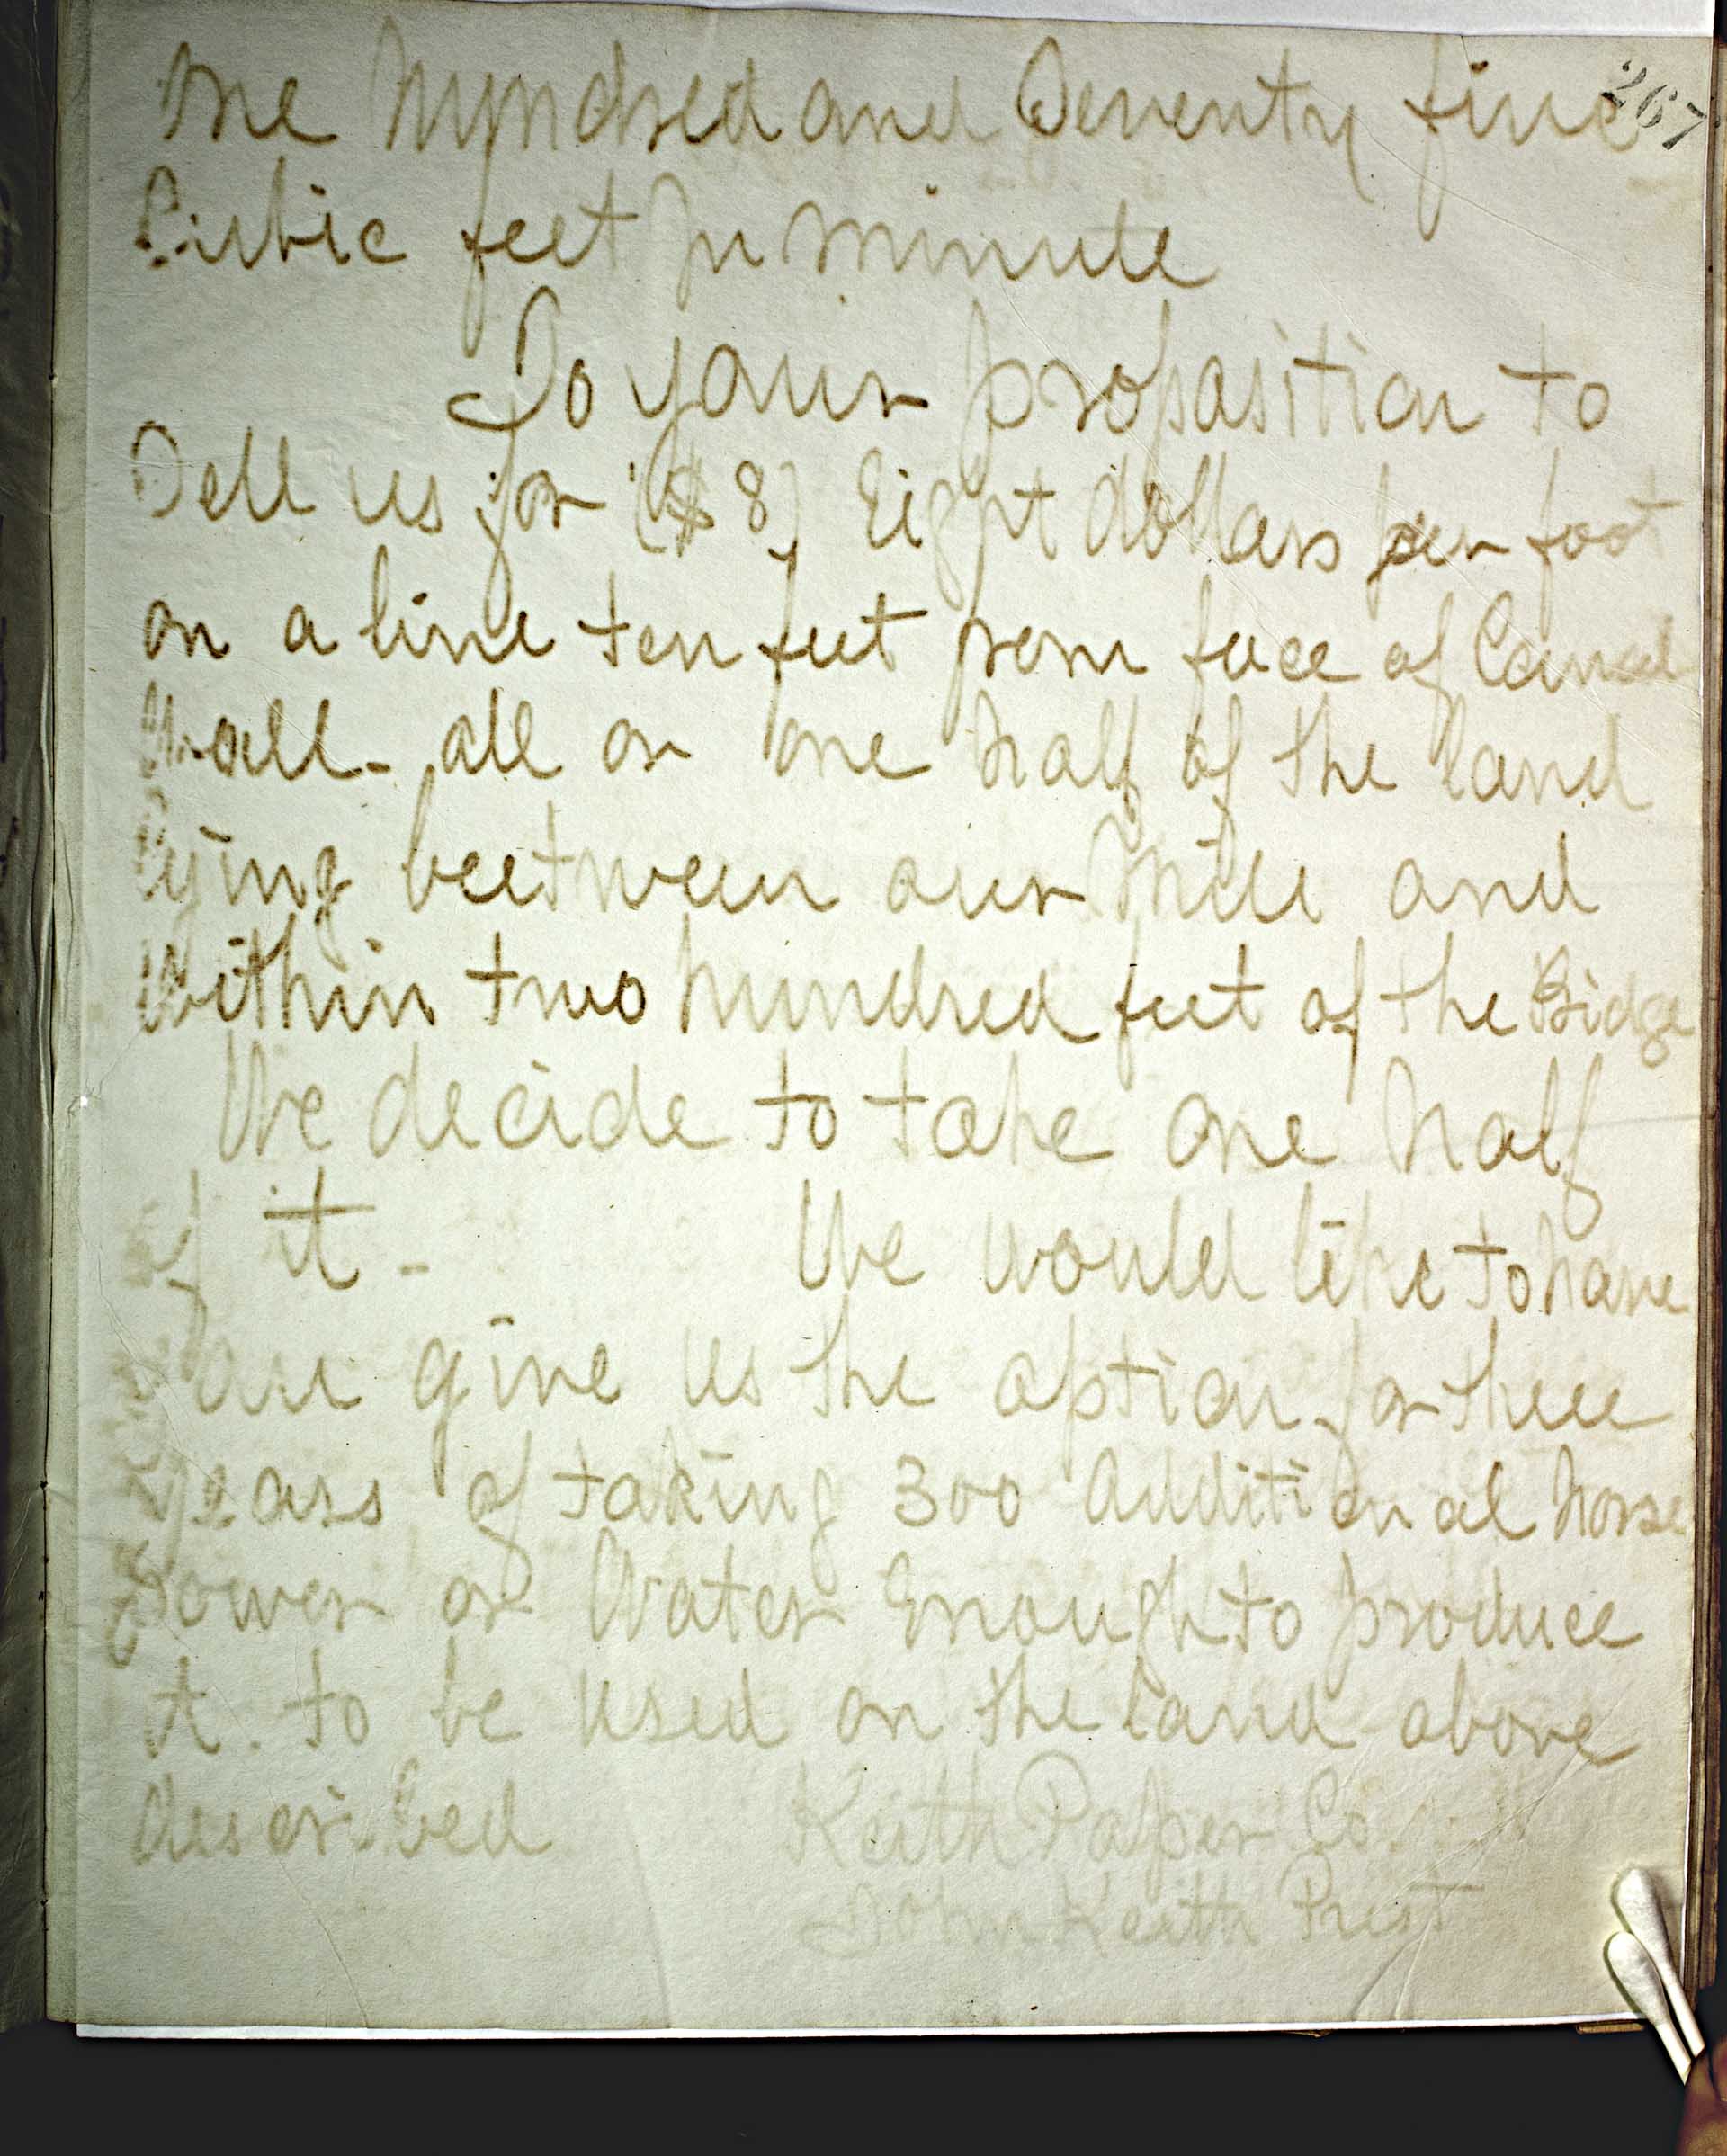 267
one hundred and Seventy five
Cubic feet per minute
To your proposition to
Sell us for ($8) Eight dollars per foot
on a line ten feet from face of Canal
Wall - all or one half of the land
lying beetween our Mill and
within two hundred feet of the Bidge
We decide to take one half
of it - We would like to have
you give us the option for three
years of taking 300 additional horse
power or Water Enough to produce
it. to be used on the land above
described Keith Paper Co.
John Keith Prest